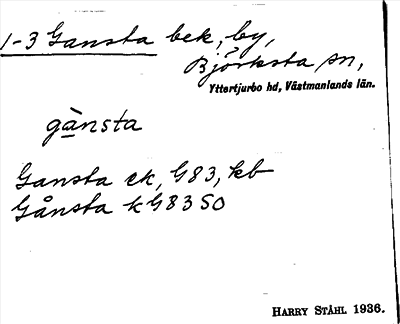 1-3 Gansta bek, by,
Björksta sn,
Yttertjurbo hd, Västmanlands län.
gànsta
Gansta ek, G83, kb
Gånsta k G83 SO
HARRY STÅHL 1936.